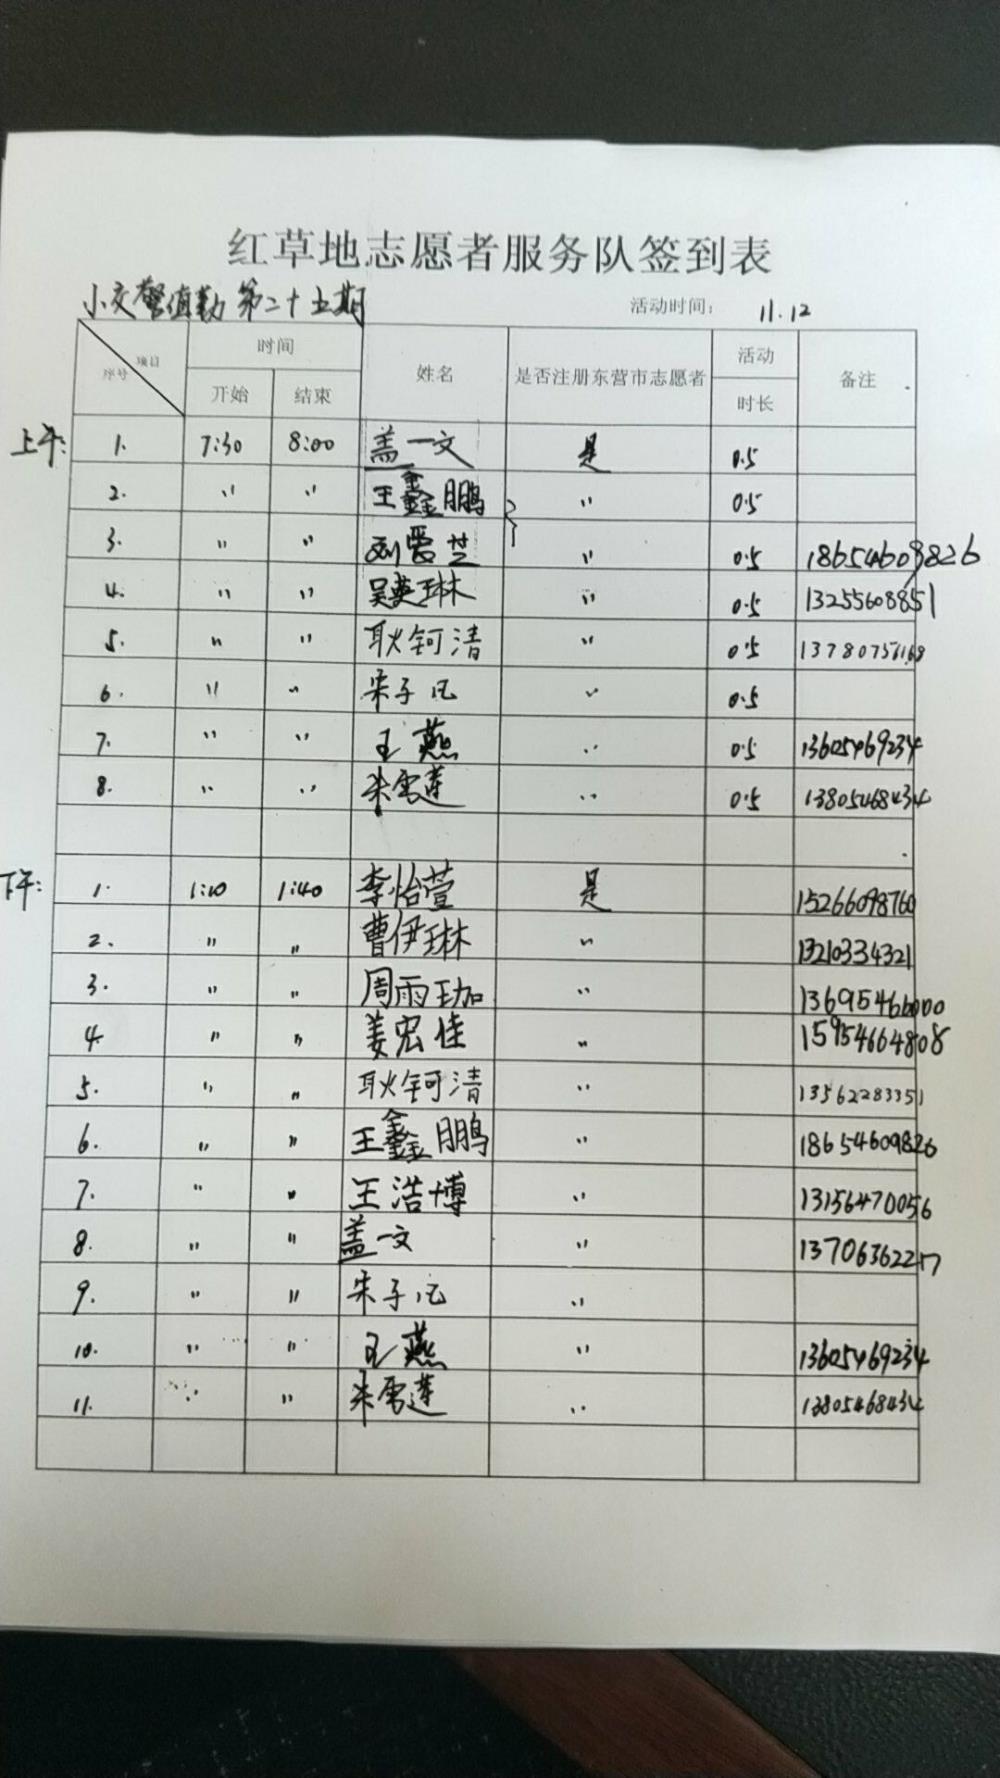 红草地志愿者服务队签到表
小交警值勤第二十五期 活动时间： 11.12
项目 序号 时间 开始 结束 姓名 是否注册东营市志愿者 活动时长 备注
上午: 1. 7:30 8:00 盖一文 是 0.5
2. 〃 〃 王鑫鹏 〃 0.5
3. 〃 〃 刘爱芝 〃 0.5 18654609826
4. 〃 〃 吴英琳 〃 0.5 13255608851
5. 〃 〃 耿钶清 〃 0.5
6. 〃 〃 宋子凡 〃 0.5
7. 〃 〃 王燕 〃 0.5 13605469234
8. 〃 〃 朱雪莲 〃 0.5 13805468434
下午: 1. 1:10 1:40 李怡萱 是 15266098760
2. 〃 〃 曹伊琳 〃 13210334321
3. 〃 〃 周雨珈 〃 13695466000
4. 〃 〃 姜宏佳 〃 15954664808
5. 〃 〃 耿钶清 〃 13562283351
6. 〃 〃 王鑫鹏 〃 18654609826
7. 〃 〃 王浩博 〃 13156470056
8. 〃 〃 盖一文 〃
9. 〃 〃 宋子凡 〃
10. 〃 〃 王燕 〃 13605469234
11. 〃 〃 朱雪莲 〃 13805468434